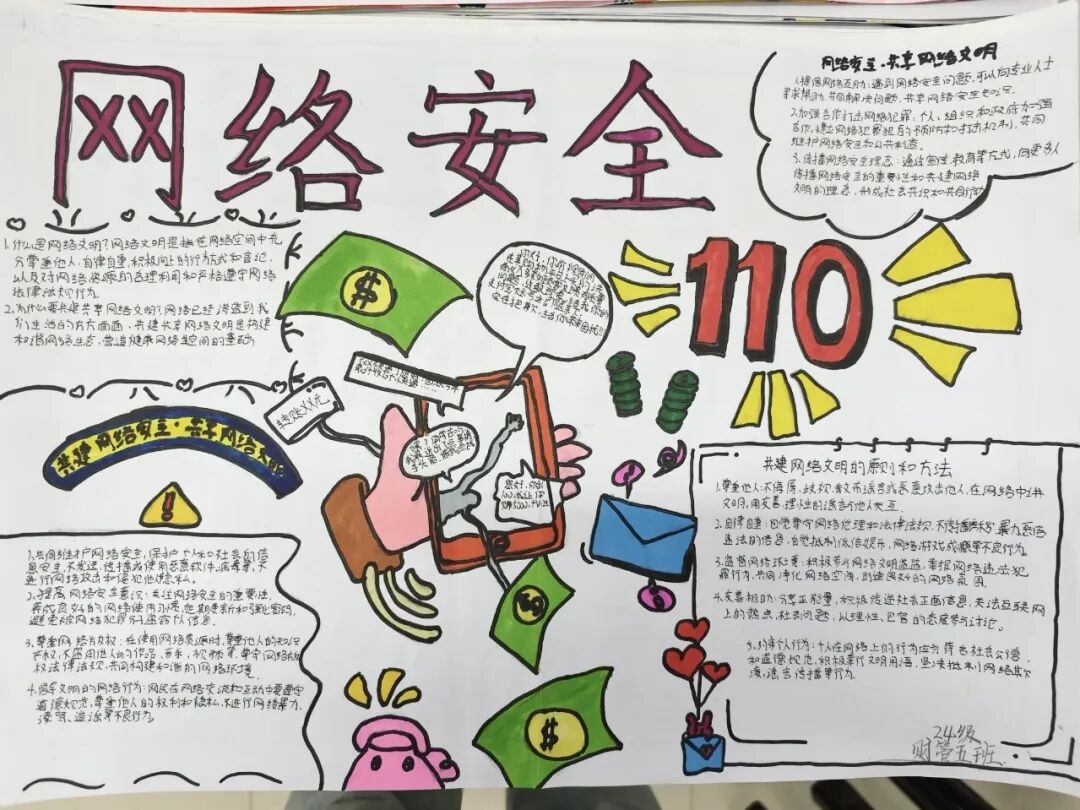 网络安全
网络安全·共享网络文明
1.提倡网络互助:遇到网络安全问题,可以向专业人士
寻求帮助,共同解决问题,共享网络安全
2.加强合作打击网络犯罪,个人、组织和政府加强
合作,建立网络犯罪的预防和打击机制,共同
维护网络安全和公共利益。
3.传播网络安全理念:通过宣传,教育等方式,向更多人
传播网络安全的重要性和共建网络
文明的理念,形成社会共识和共同行动
1.什么是网络文明?网络文明是指在网络空间中充
分尊重他人,自律自重,积极向上的行为方式和言论,
以及对网络资源的合理利用和严格遵守网络
法律法规行为。
2.为什么要共建共享网络文明?网络已经渗透到我
们生活的方方面面,共建共享网络文明是构建
和谐网络生态,营造健康网络空间的基础
110
共建网络安全·共享网络文明
转账XX元
您好,
1.共同维护网络安全,保护个人和社会的信
息安全,不发送,传播或使用恶意软件,病毒等,不
进行网络攻击和侵犯他人隐私。
2.提高网络安全意识:关注网络安全的重要性,
养成良好的网络使用习惯,定期更新和强化密码,
避免被网络犯罪分子盗窃个人信息。
3.尊重网络版权:在使用网络资源时,尊重他人的知识
产权,不盗用他人的作品、音乐,视频等,遵守网络版
权法律法规,共同构建和谐的网络环境。
4.倡导文明的网络行为:网民在网络交流和互动中要遵守
道德规范,尊重他人的权利和隐私,不进行网络暴力、
谩骂、造谣等不良行为。
共建网络文明的原则和方法
1.尊重他人:不侮辱、歧视、散布谣言或恶意攻击他人,在网络中讲
文明,用友善、理性的语言与他人交互.
2.自律自重:自觉遵守网络伦理和法律法规,不传播暴力恶俗
违法的信息,自觉抵制低俗娱乐,网络游戏成瘾等不良行为。
3.监督网络环境:积极参与网络文明监监,举报网络违法犯
罪行为,共同净化网络空间,创造良好的网络氛围
4.友善相助:分享正能量,积极传递社会正面信息,关注互联网
上的热点、社会问题,以理性、包容的态度参与讨论。
5.约束个人行为:个人在网络上的行为应当符合社会公德
和道德规范,积极奉行文明用语,坚决抵制网络欺
凌,谣言传播等行为。
24级
财管五班